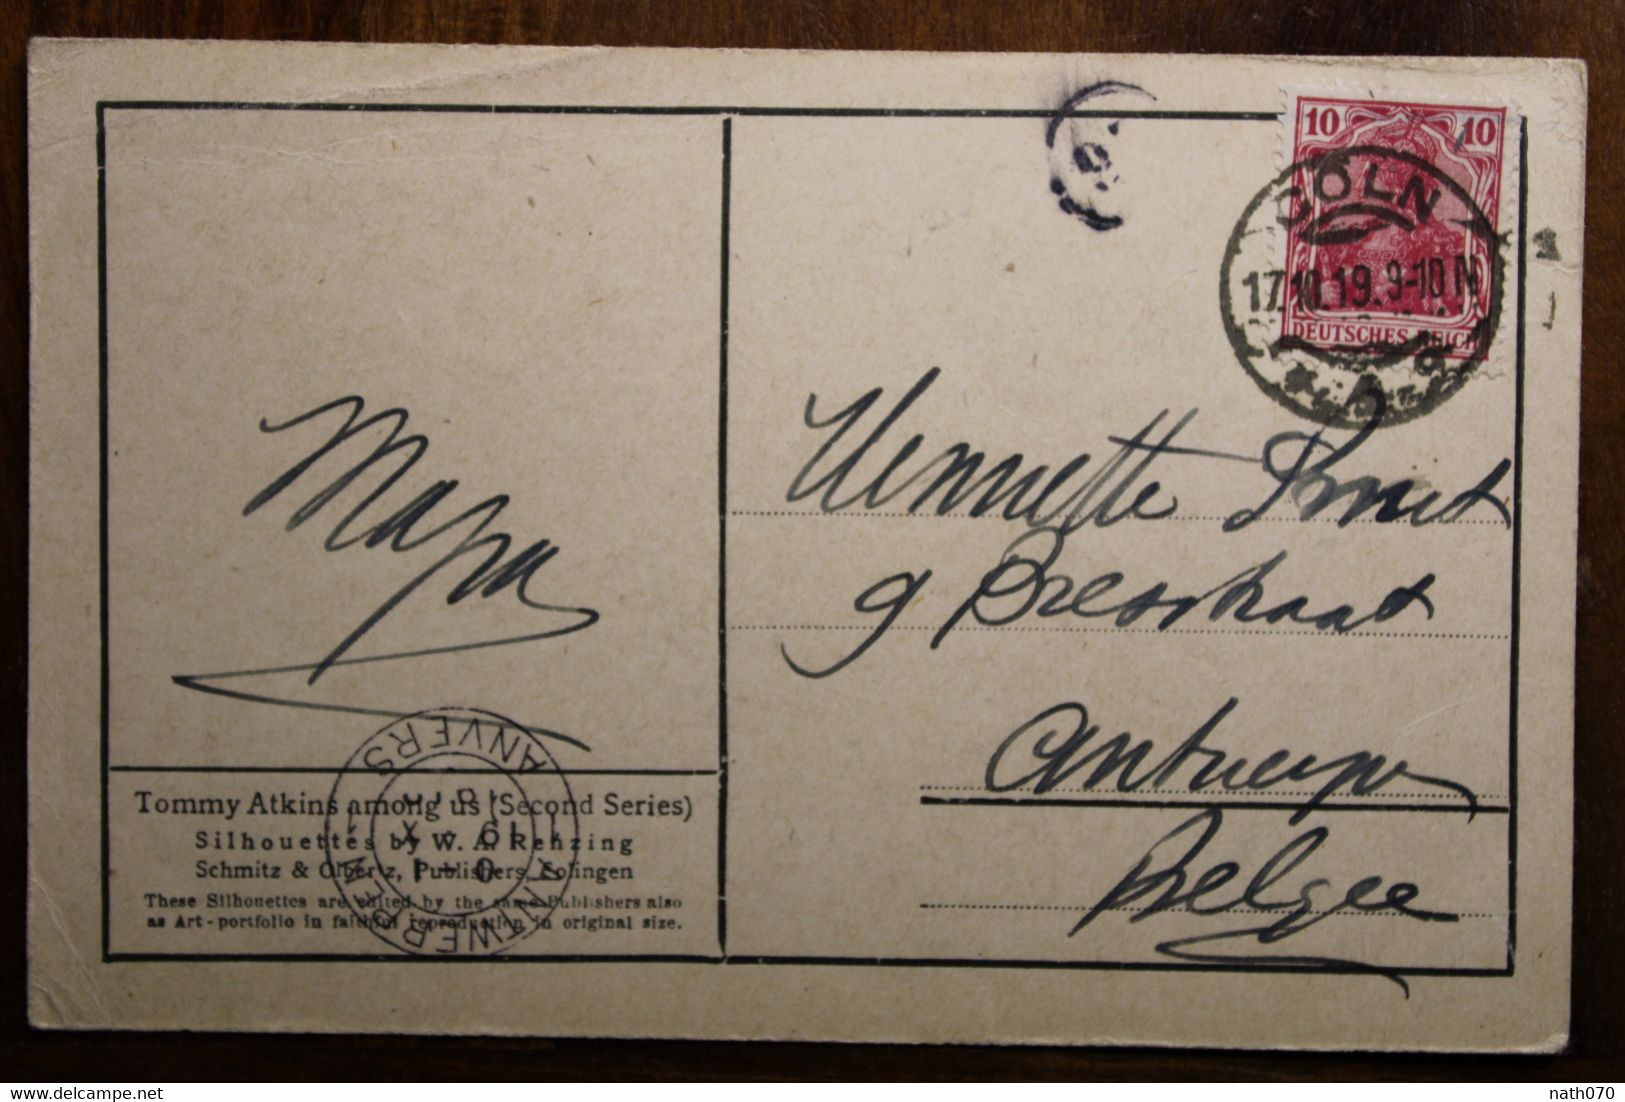 10 10
CÖLN
17.10.19. 9-10 N
DEUTSCHES REICH
Mapa
Henriette Smet
9 Breestraat
Antwerpen
Belgee
ANVERS
ANTWERPEN
Tommy Atkins among us (Second Series)
Silhouettes by W. A. Rehzing
Schmitz & Olbertz, Publishers, Solingen
These Silhouettes are edited by the same Publishers also
as Art-portfolio in faithful reproduction in original size.
delcampe.net
nath070